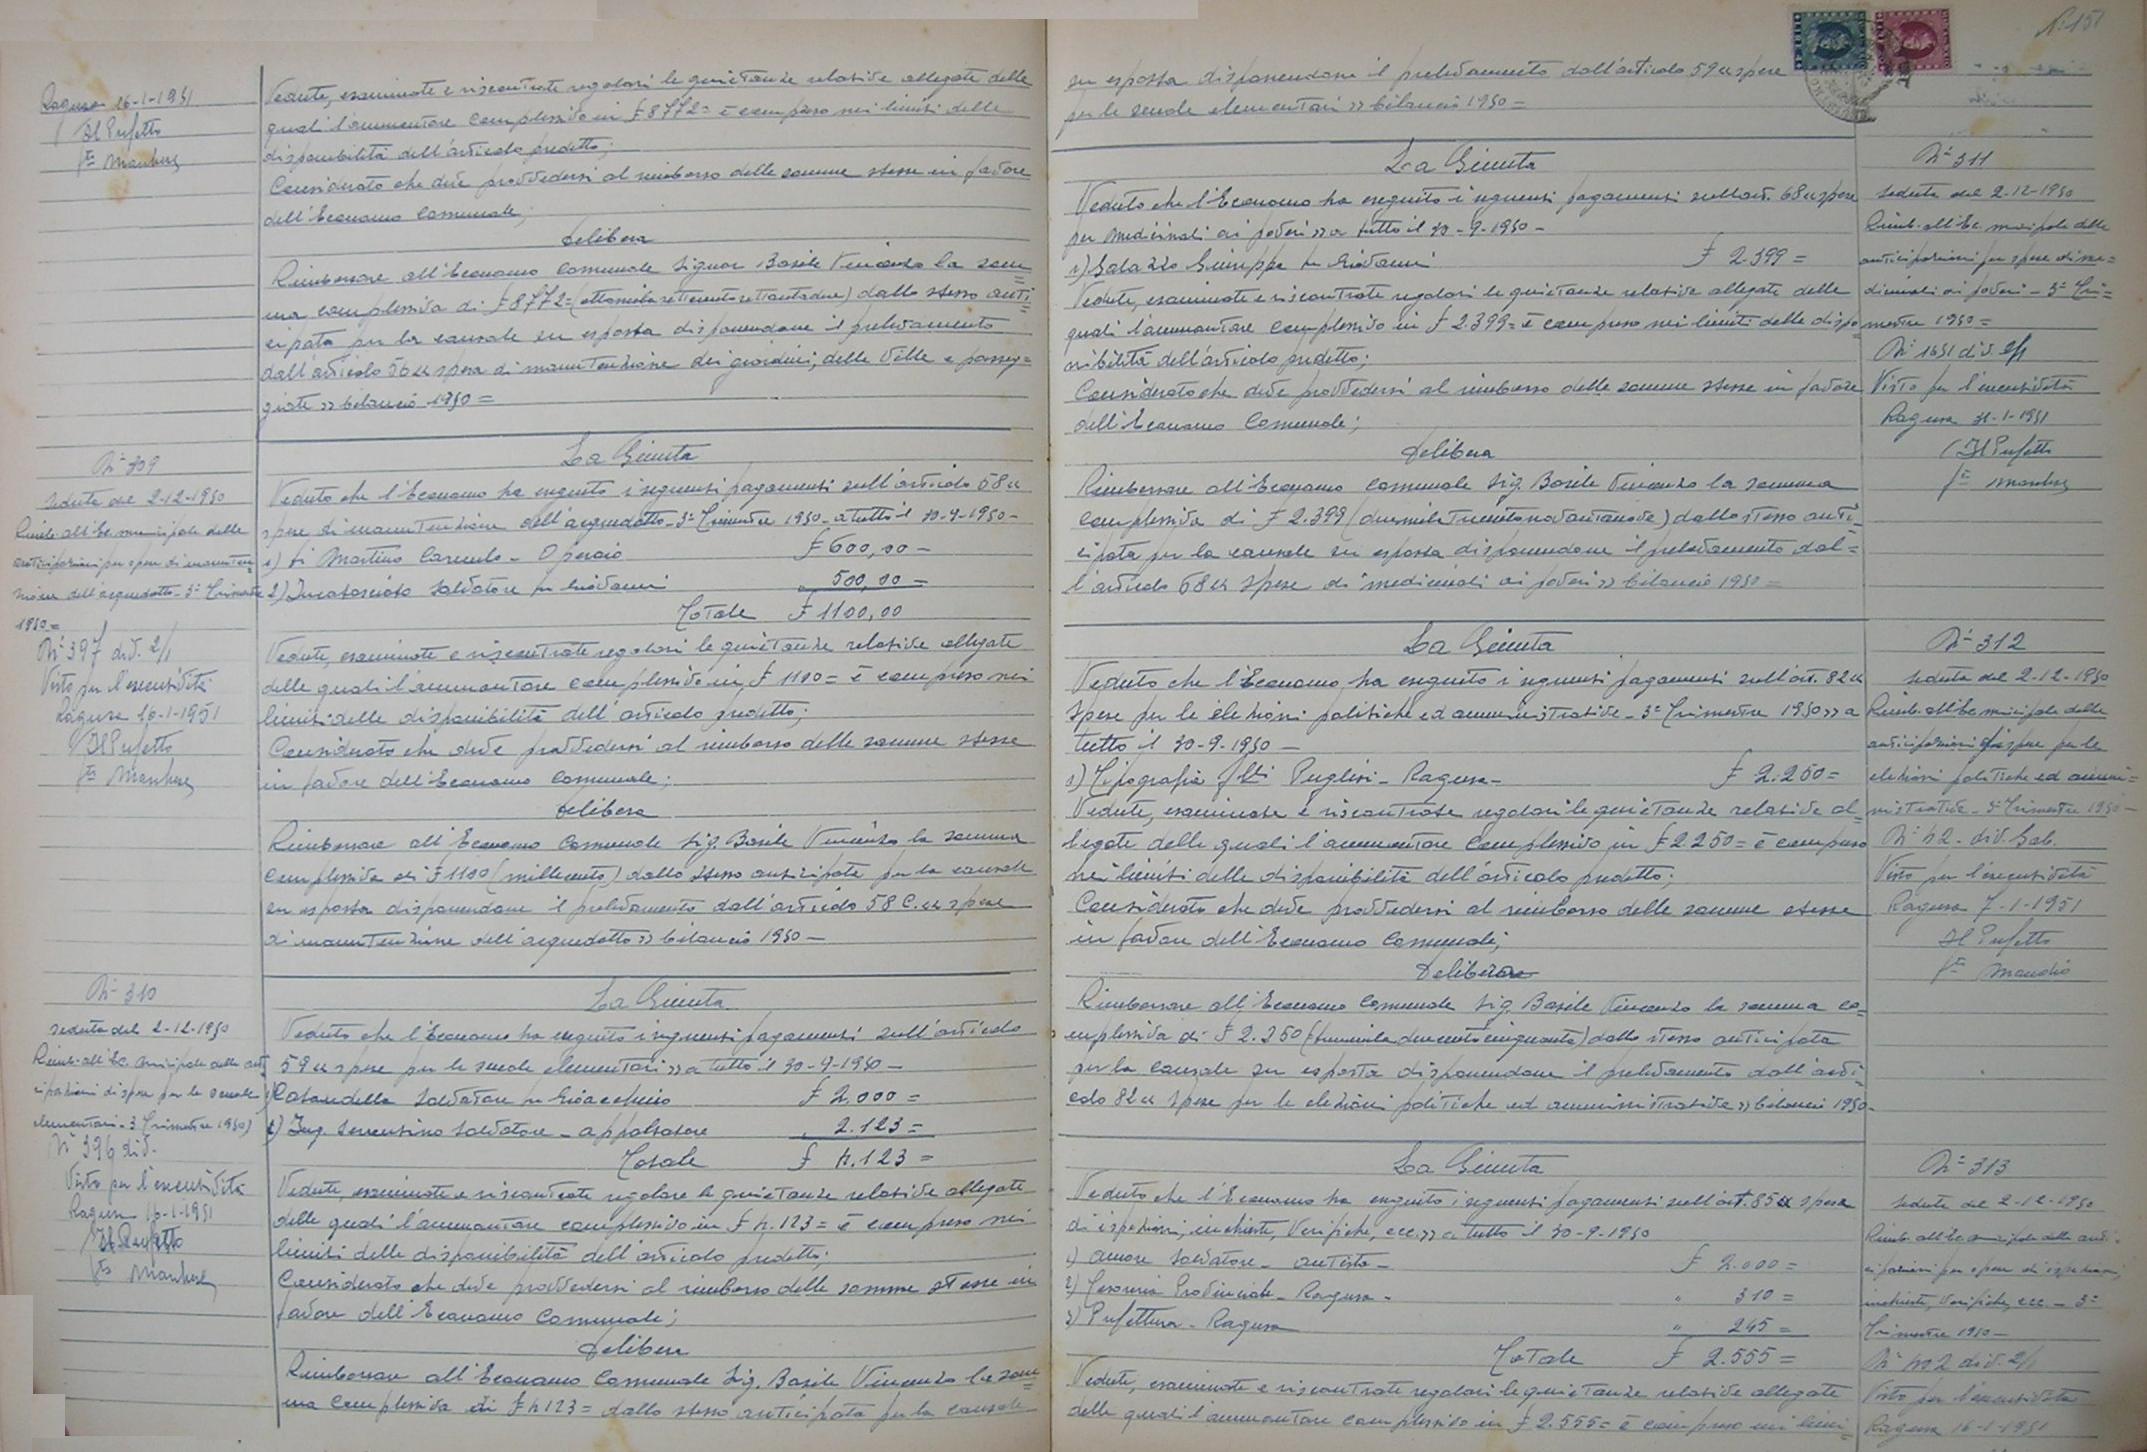 Ragusa 16-1-1951
Il Prefetto
Vedute, esaminate e riscontrate regolari le quietanze relative allegate delle
quali l'ammontare complessivo in £ 8772= è compreso nei limiti delle
disponibilità dell'articolo predetto;
Considerato che deve provvedersi al rimborso delle somme stesse in favore
dell'Economo Comunale;
Delibera
Rimborsare all'Economo Comunale Signor Basile Vincenzo la som=
ma complessiva di £ 8772= (ottomilasettecentosettantadue) dallo stesso anti=
cipata per la causale su esposta disponendone il prelevamento
dall'articolo 56 "spesa di manutenzione dei giardini, delle Ville e passeg=
giate" bilancio 1950=
N° 309
seduta del 2-12-1950
Rimb. all'Ec. municipale delle
anticipazioni per spese di manuten=
zione dell'acquedotto - 3° Trimestre
1950=
N° 397 div. 2/1
Visto per l'esecutività
Ragusa 16-1-1951
Il Prefetto
La Giunta
Veduto che l'Economo ha eseguito i seguenti pagamenti sull'articolo 58 "
spese di manutenzione dell'acquedotto - 3° Trimestre 1950 - a tutto il 30-9-1950 -
1) Di Martino Carmelo - Operaio £ 600,00 -
2) Salvatore fu Giovanni " 500,00 =
Totale £ 1100,00
Vedute, esaminate e riscontrate regolari le quietanze relative allegate
delle quali l'ammontare complessivo in £ 1100= è compreso nei
limiti delle disponibilità dell'articolo predetto;
Considerato che deve provvedersi al rimborso delle somme stesse
in favore dell'Economo Comunale;
Delibera
Rimborsare all'Economo Comunale Sig. Basile Vincenzo la somma
complessiva di £ 1100 (millecento) dallo stesso anticipata per la causale
su esposta disponendone il prelevamento dall'articolo 58 C. "spese
di manutenzione dell'acquedotto" bilancio 1950 -
N° 310
seduta del 2-12-1950
Rimb. all'Ec. Municipale delle ant
icipazioni di spese per le scuole
elementari - 3 Trimestre 1950)
N° 396 div.
Visto per l'esecutività
Ragusa 16-1-1951
Il Prefetto
La Giunta
Veduto che l'Economo ha eseguito i seguenti pagamenti sull'articolo
59 "spese per le scuole elementari" a tutto il 30-9-1950 -
1) Salvatore fu Gioacchino £ 2.000 =
2) Ing. Sorrentino Salvatore - appaltatore " 2.123 =
Totale £ 4.123 =
Vedute, esaminate e riscontrate regolare le quietanze relative allegate
delle quali l'ammontare complessivo in £ 4.123 = è compreso nei
limiti delle disponibilità dell'articolo predetto;
Considerato che deve provvedersi al rimborso delle somme stesse in
favore dell'Economo Comunale;
Delibera
Rimborsare all'Economo Comunale Sig. Basile Vincenzo la som=
ma complessiva di £ 4123 = dallo stesso anticipata per la causale
N. 151
su esposta disponendone il prelevamento dall'articolo 59 "spese
per le scuole elementari" bilancio 1950 =
La Giunta
Veduto che l'Economo ha eseguito i seguenti pagamenti sull'art. 68 "spese
per medicinali ai poveri" a tutto il 30-9-1950 -
1) Giuseppe fu Giovanni £ 2.399 =
Vedute, esaminate e riscontrate regolari le quietanze relative allegate delle
quali l'ammontare complessivo in £ 2.399= è compreso nei limiti delle dispo
nibilità dell'articolo predetto;
Considerato che deve provvedersi al rimborso delle somme stesse in favore
dell'Economo Comunale;
Delibera
Rimborsare all'Economo Comunale Sig. Basile Vincenzo la somma
complessiva di £ 2.399 (duemilatrecentonovantanove) dallo stesso anti=
cipata per la causale su esposta disponendone il prelevamento dal=
l'articolo 68 "Spese di medicinali ai poveri" bilancio 1950 =
N° 311
seduta del 2-12-1950
Rimb. all'Ec. municipale delle
anticipazioni per spese di me=
dicinali ai poveri - 3° Tri=
mestre 1950 =
Visto per l'esecutività
Ragusa 31-1-1951
Il Prefetto
La Giunta
Veduto che l'Economo ha eseguito i seguenti pagamenti sull'art. 82 "
Spese per le elezioni politiche ed amministrative - 3° Trimestre 1950" a
tutto il 30-9-1950 -
1) Tipografia f.lli Puglisi - Ragusa - £ 2.250 =
Vedute, esaminate e riscontrate regolari le quietanze relative al=
legate delle quali l'ammontare complessivo in £ 2250 = è compreso
nei limiti delle disponibilità dell'articolo predetto;
Considerato che deve provvedersi al rimborso delle somme stesse
in favore dell'Economo Comunale;
Delibera
Rimborsare all'Economo Comunale Sig. Basile Vincenzo la somma co=
mplessiva di £ 2.250 (duemiladuecentocinquanta) dallo stesso anticipata
per la causale su esposta disponendone il prelevamento dall'arti=
colo 82 "Spese per le elezioni politiche ed amministrative" bilancio 1950 -
N° 312
seduta del 2-12-1950
Rimb. all'Ec. municipale delle
anticipazioni di spese per le
elezioni politiche ed ammi=
nistrative - 3° Trimestre 1950 -
N° 42 - div. Gab.
Visto per l'esecutività
Ragusa 7-1-1951
Il Prefetto
La Giunta
Veduto che l'Economo ha eseguito i seguenti pagamenti sull'art. 85 "spese
di ispezioni, inchieste, Verifiche, ecc." a tutto il 30-9-1950
1) Amore Salvatore - autista - £ 2.000 =
2) Tesoreria Provinciale - Ragusa - " 310 =
3) Prefettura - Ragusa " 245 =
Totale £ 2.555 =
Vedute, esaminate e riscontrate regolari le quietanze relative allegate
delle quali l'ammontare complessivo in £ 2.555 = è compreso nei limi=
N° 313
seduta del 2-12-1950
Rimb. all'Ec. municipale delle anti=
cipazioni per spese di ispezioni,
inchieste, Verifiche, ecc. - 3°
Trimestre 1950 -
N° 402 div. 2/1
Visto per l'esecutività
Ragusa 16-1-1951